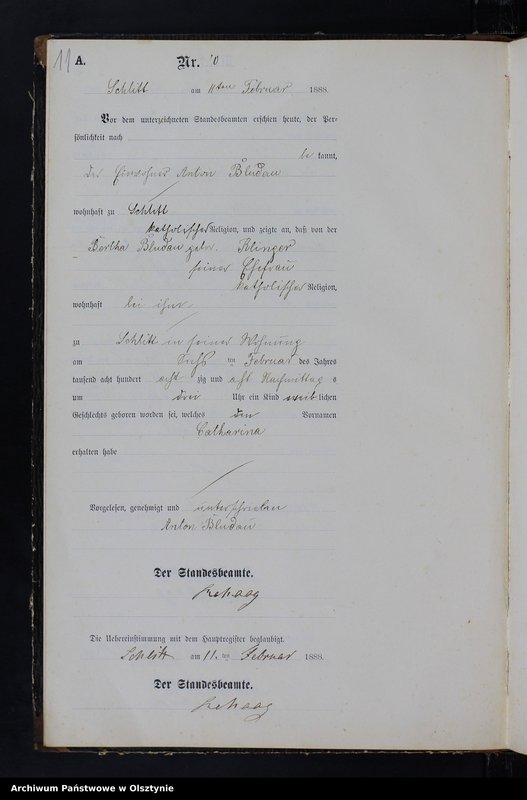 11 A. Nr. 10
Schlitt am 11ten Februar 1888.
Vor dem unterzeichneten Standesbeamten erschien heute, der Per-
sönlichkeit nach
be kannt,
der Einwohner Anton Bludau
wohnhaft zu Schlitt
katholischer Religion, und zeigte an, daß von der
Bertha Bludau gebor. Klinger
seiner Ehefrau
katholischer Religion,
wohnhaft bei ihm
zu Schlitt in seiner Wohnung
am ten Februar des Jahres
tausend acht hundert acht zig und acht Nachmittag s
um drei Uhr ein Kind weib lichen
Geschlechts geboren worden sei, welches den Vornamen
Catharina
erhalten habe
Vorgelesen, genehmigt und unterschrieben
Anton Bludau
Der Standesbeamte.
Rehaag
Die Uebereinstimmung mit dem Hauptregister beglaubigt.
Schlitt am 11. ten Februar 1888.
Der Standesbeamte.
Rehaag
Archiwum Państwowe w Olsztynie